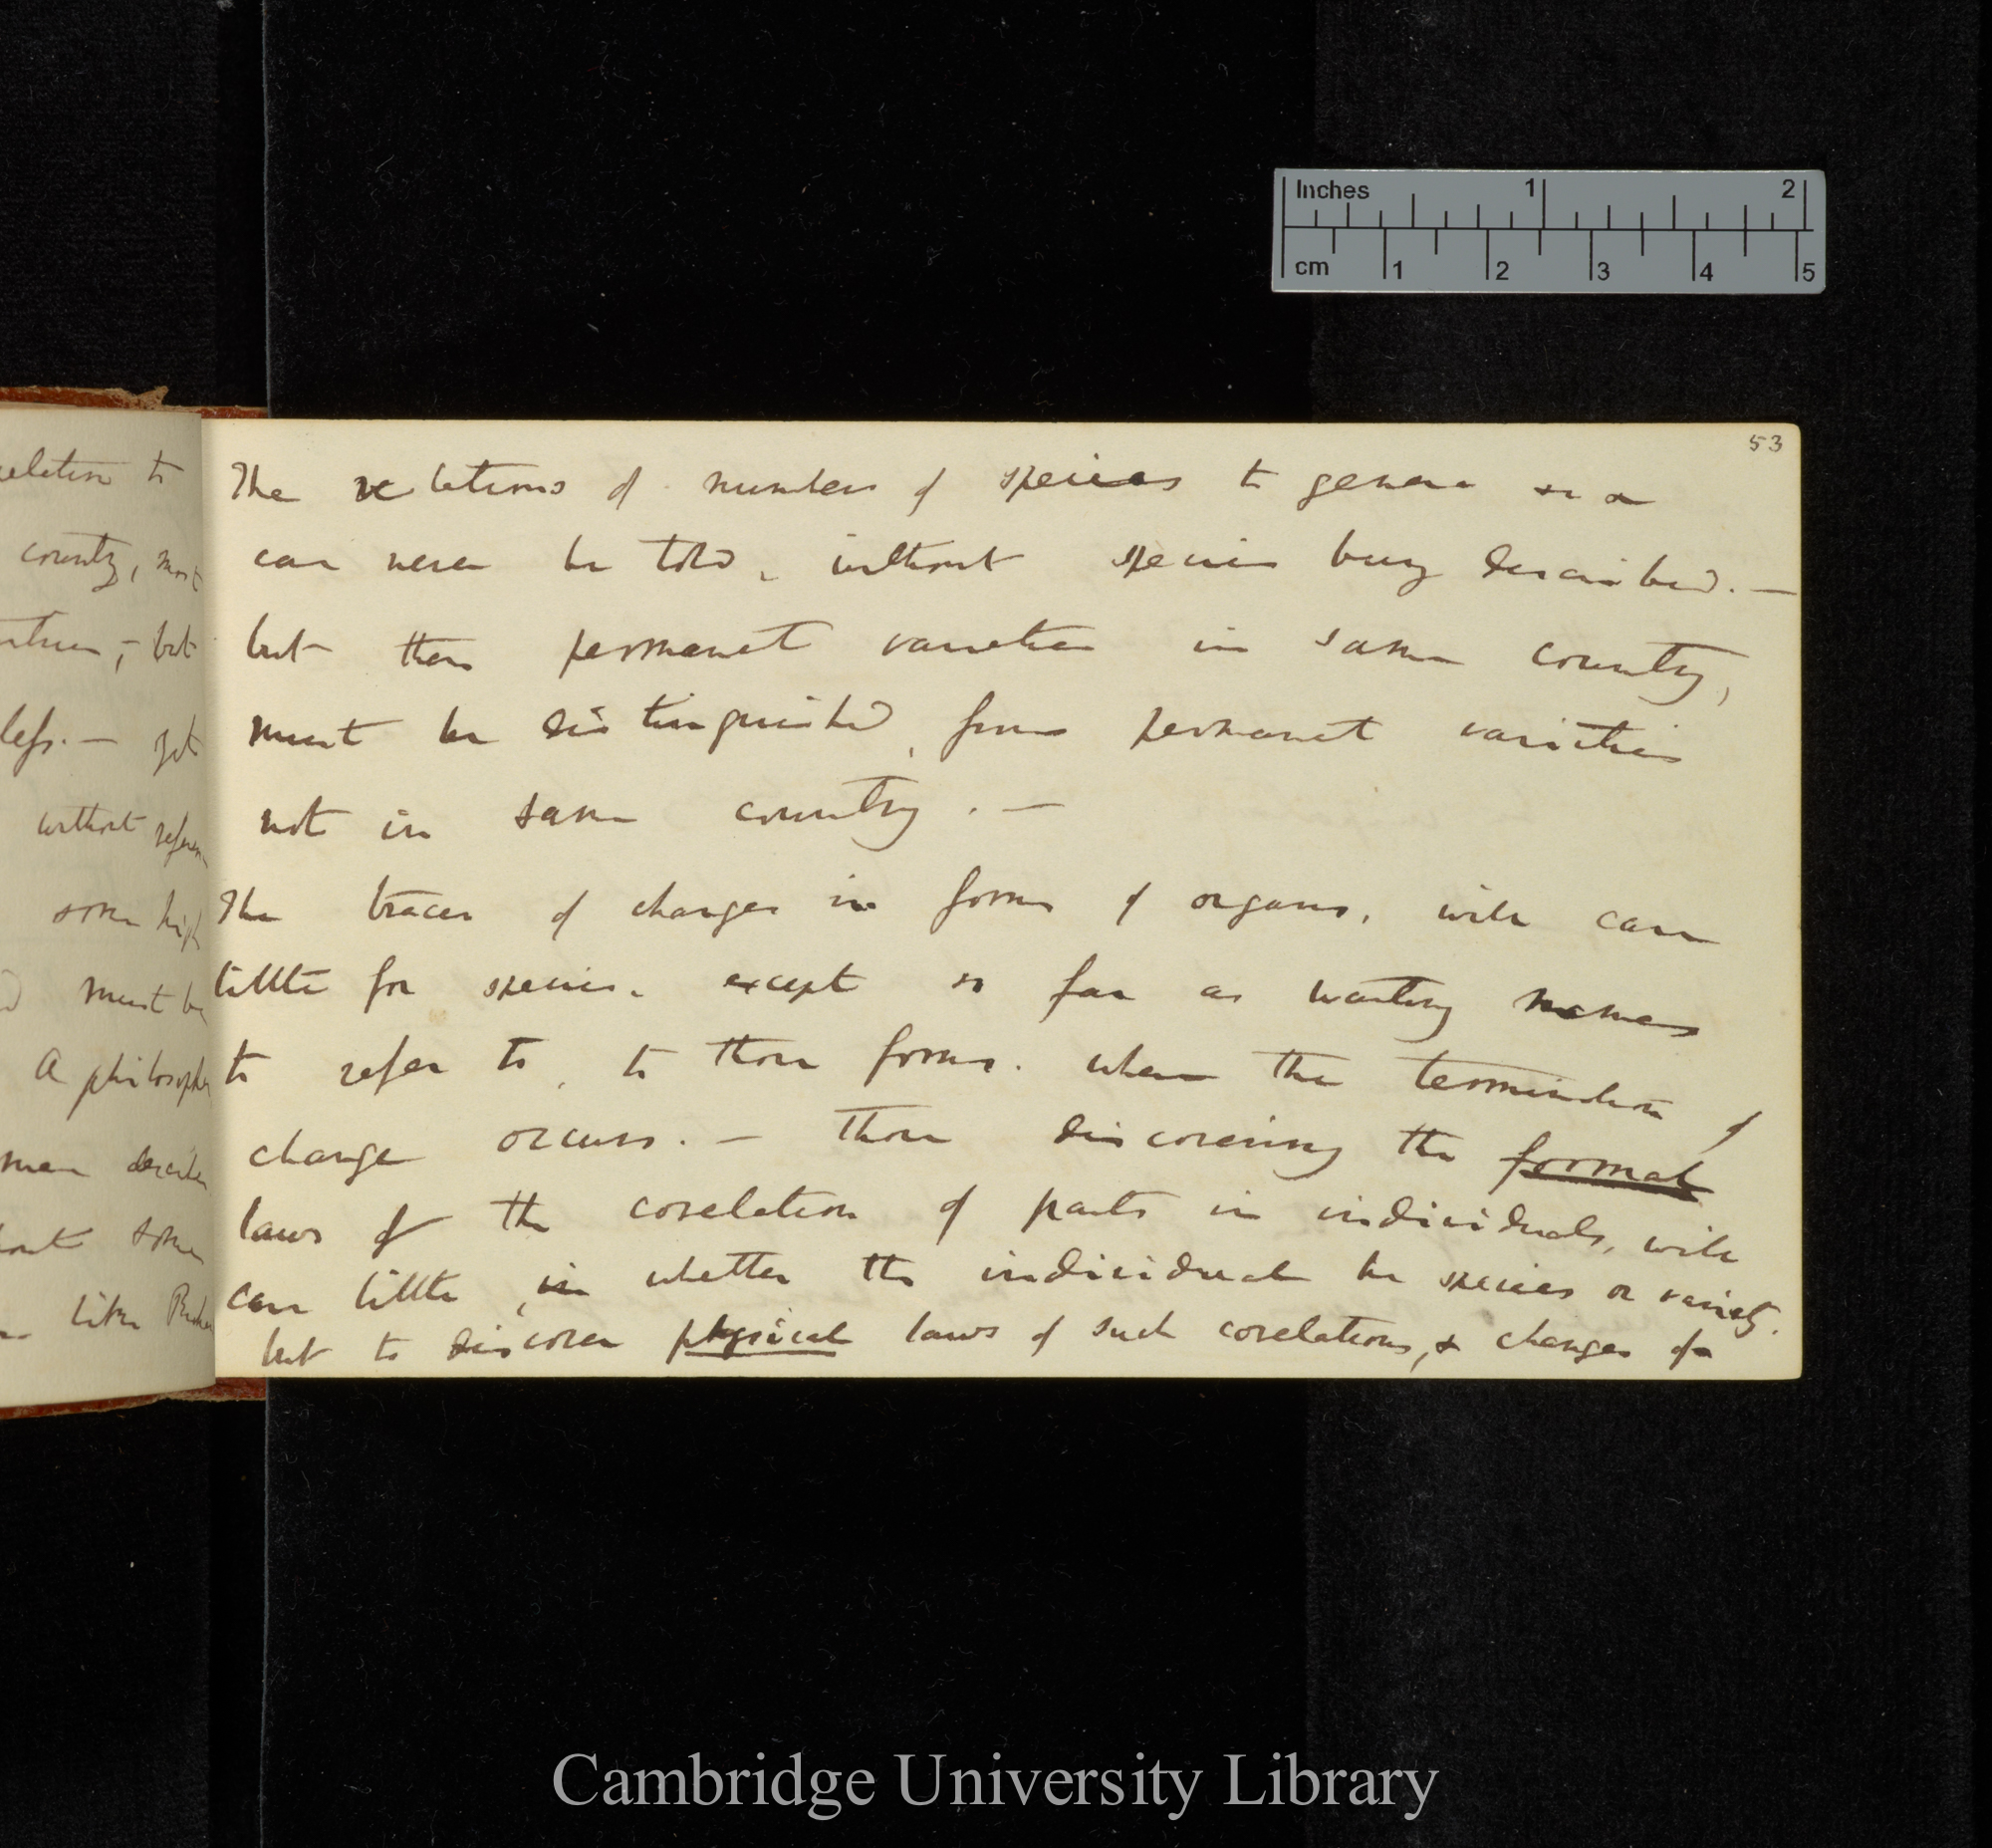 Inches 1 2
cm 1 2 3 4 5
elation to
county, most
but
less. — yet
without referen
some high
must be
A philosopher
man describe
some
like
53
The relations of numbers of species to genera &c &c
can never be told, without species being described. —
but then permanent varieties in same country,
must be distinguished, from permanent varieties
not in same country. —
The tracer of changes in forms of organs, will care
little for species, except so far as wanting names
to refer to, to those forms. where the termination of
change occurs. — those discovering the formal
laws of the corelation of parts in individuals, will
care little, in whether the individual be species or variety.
but to discover physical laws of such corelations, & changes of
Cambridge University Library